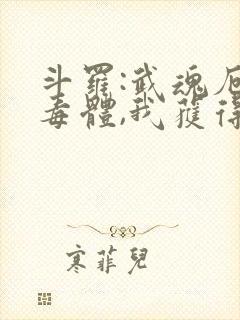 斗羅:武魂厄
毒體,我獲得
寒菲兒